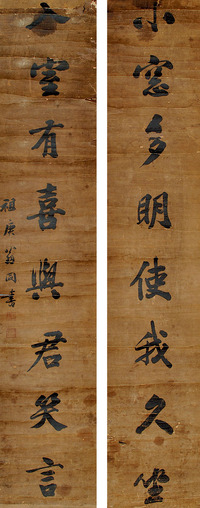 小窓多明使我久坐
入室有喜與君笑言
祖庚翁同書